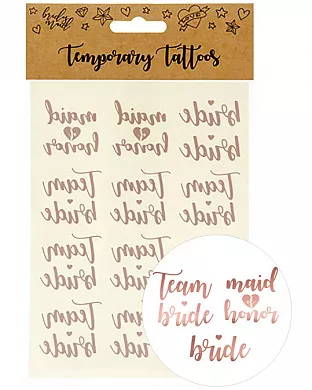 bride maid
LOVE
Temporary Tattoos
maid maid bride
honor honor bride
Team Team Team
bride bride bride
Team Team Team
bride bride bride
Team Team Team
bride bride bride
Team maid
bride honor
bride